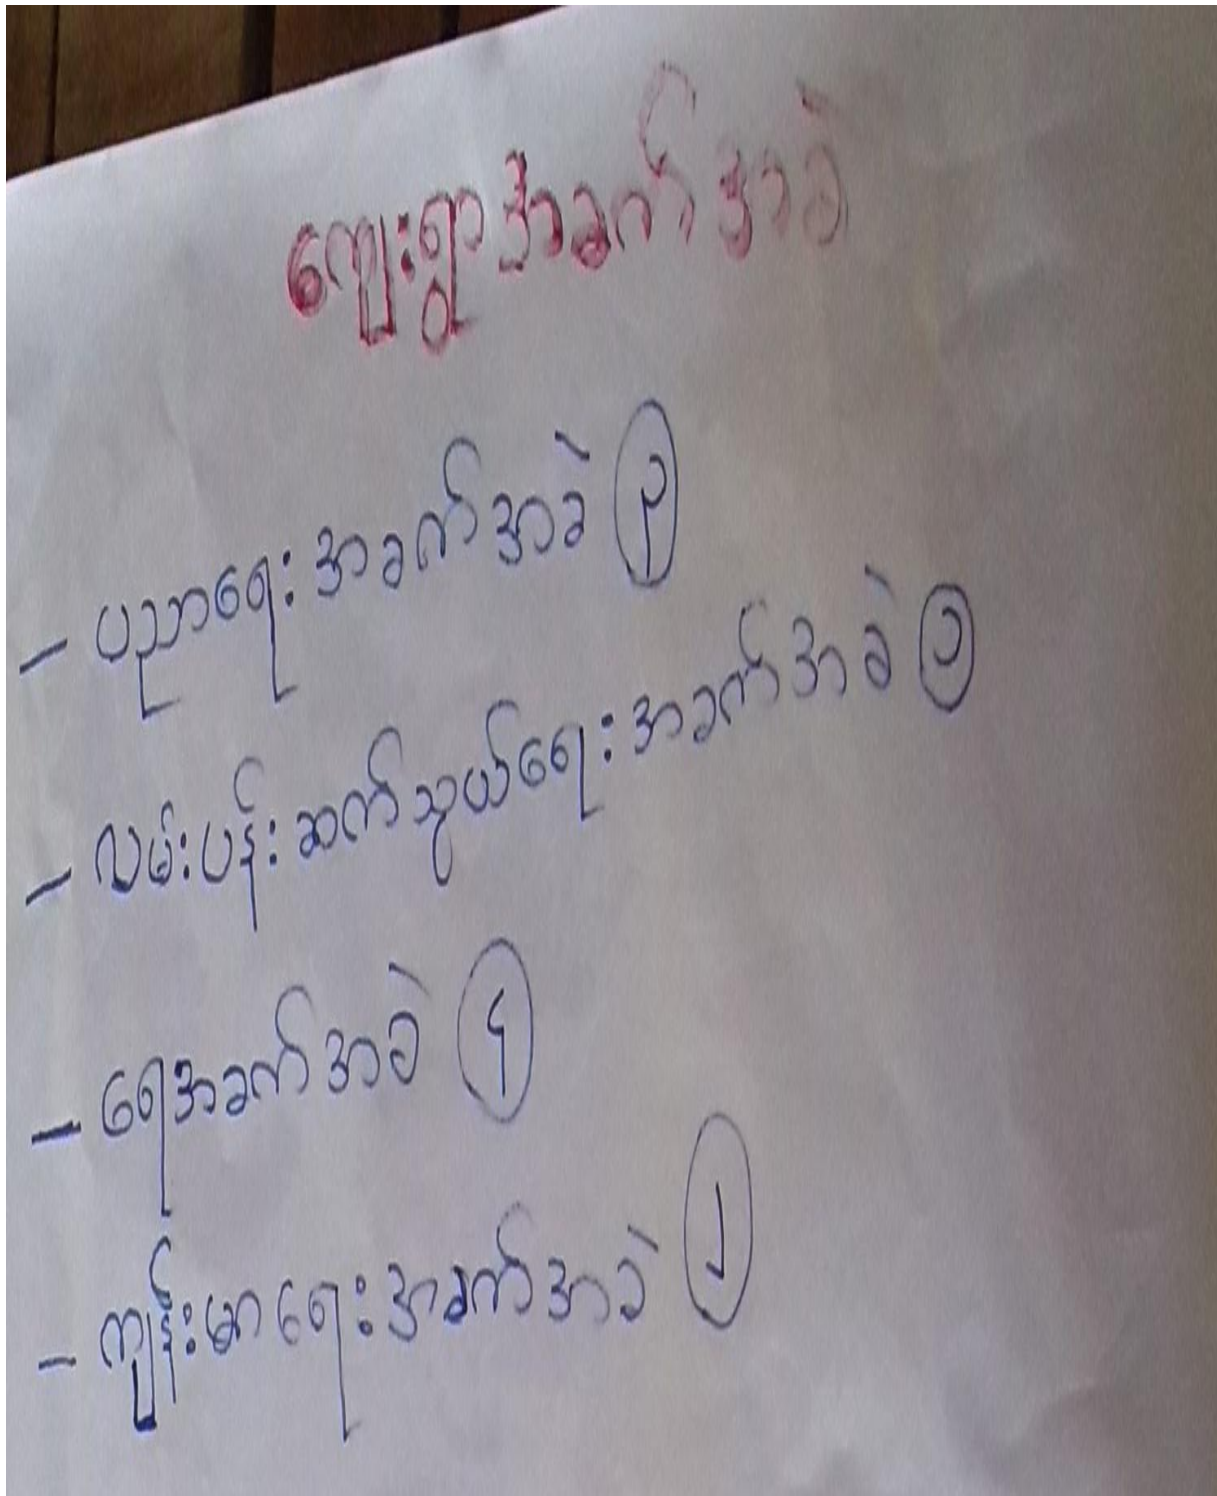 ကျေးရွာအခက်အခဲ
- ပညာရေးအခက်အခဲ ၃
- လမ်းပန်းဆက်သွယ်ရေးအခက်အခဲ ၁
- ရေအခက်အခဲ ၄
- ကျန်းမာရေးအခက်အခဲ ၂